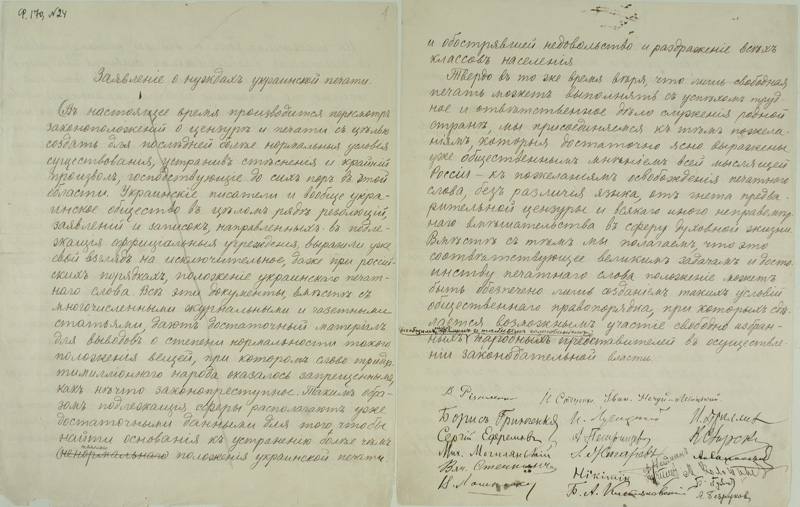 Ф. 170, №24
1
Заявленіе о нуждахъ украинской печати.
Въ настоящее время производится пересмотръ
законоположеній о цензурѣ и печати съ цѣлью
создать для послѣдней болѣе нормальныя условія
существованія, устранивъ стѣсненія и крайній
произволъ, господствующіе до сихъ поръ въ этой
области. Украинскіе писатели и вообще укра-
инское общество въ цѣломъ рядѣ резолюцій,
заявленій и записокъ, направленныхъ въ подле-
жащія оффиціальныя учрежденія, выразили уже
свой взглядъ на исключительное, даже при россій-
скихъ порядкахъ, положеніе украинскаго печат-
наго слова. Всѣ эти документы, вмѣстѣ съ
многочисленными журнальными и газетными
статьями, даютъ достаточный матеріалъ
для выводовъ о степени нормальности такого
положенія вещей, при которомъ слово тридца-
тимилліоннаго народа оказалось запрещеннымъ,
какъ нѣчто законопреступное. Такимъ обра-
зомъ подлежащія сферы располагаютъ уже
достаточными данными для того, чтобы
найти основанія къ устраненію болѣе чѣмъ
ненормальнаго положенія украинской печати
и обострявшей недовольство и раздраженіе всѣхъ
классовъ населенія
Твердо въ то же время вѣря, что лишь свободная
печать можетъ выполнять съ успѣхомъ труд-
ное и отвѣтственное дѣло служенія родной
странѣ, мы присоединяемся къ тѣмъ пожела-
ніямъ, которыя достаточно ясно выражены
уже общественнымъ мнѣніемъ всей мыслящей
Россіи – къ пожеланіямъ освобожденія печатнаго
слова, безъ различія языка, отъ гнета предва-
рительной цензуры и всякаго иного неправомѣр-
наго вмѣшательства въ сферу духовной жизни.
Вмѣстѣ съ тѣмъ мы полагаемъ, что это
соотвѣтствующее великимъ задачамъ и досто-
инству печатнаго слова положеніе можетъ
быть обеспечено лишь созданіемъ такихъ условій
общественнаго правопорядка, при которыхъ сдѣ-
лается возможнымъ участіе свободно избран-
ныхъ народныхъ представителей въ осуществле-
ніи законодательной власти.
Борисъ Гринченко
Сергій Ефремовъ
Мих. Могилянскій
Нікітін
Б. А. Кистяковскій